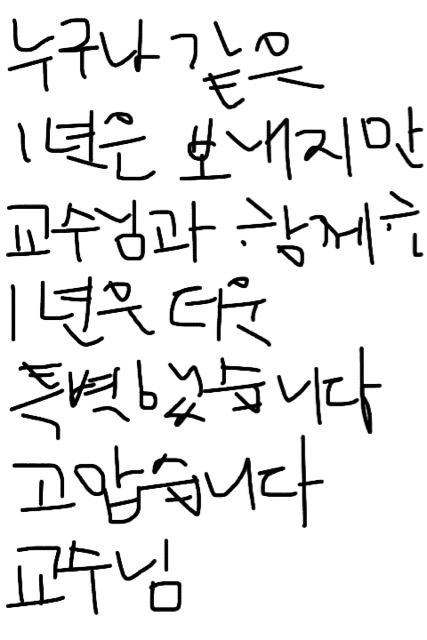 누구나 같은
1년은 보내지만
교수님과 함께한
1년은 더욱
특별했습니다
고맙습니다
교수님